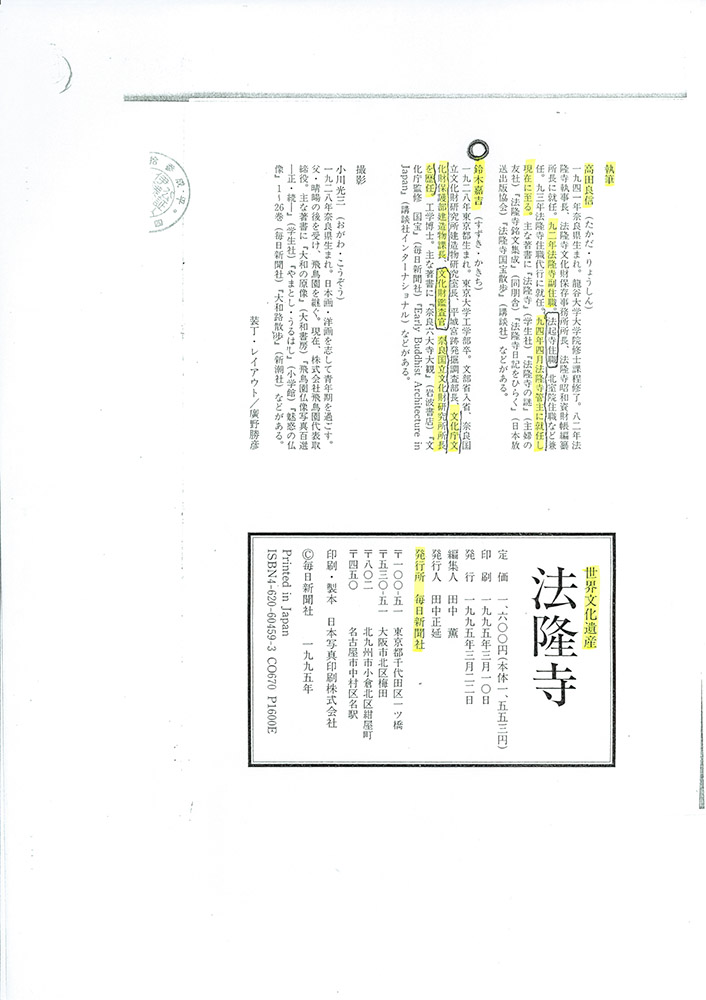 執筆
高田良信 (たかだ・りょうしん)
一九四一年奈良県生まれ。龍谷大学大学院修士課程修了。八二年法
隆寺執事長、法隆寺文化財保存事務所所長、法隆寺昭和資財帳編纂
所長に就任。九二年法隆寺副住職、法起寺住職、北室院住職など兼
任。九三年法隆寺住職代行に就任。九四年四月法隆寺管主に就任し
現在に至る。主な著書に『法隆寺』(学生社)『法隆寺の謎』(主婦の
友社)『法隆寺銘文集成』(同朋舎)『法隆寺日記をひらく』(日本放
送出版協会)『法隆寺国宝散歩』(講談社)などがある。
鈴木嘉吉 (すずき・かきち)
一九二八年東京都生まれ。東京大学工学部卒。文部省入省、奈良国
立文化財研究所建造物研究室長、平城宮跡発掘調査部長、文化庁文
化財保護部建造物課長、文化財鑑査官、奈良国立文化財研究所所長
を歴任。工学博士。主な著書に『奈良六大寺大観』(岩波書店)『文
化庁監修 国宝』(毎日新聞社)『Early Buddhist Architecture in
Japan』(講談社インターナショナル)などがある。
撮影
小川光三 (おがわ・こうぞう)
一九二八年奈良県生まれ。日本画・洋画を志して青年期を過ごす。
父・晴暘の後を受け、飛鳥園を継ぐ。現在、株式会社飛鳥園代表取
締役。主な著書に『大和の原像』(大和書房)『飛鳥園仏像写真百選
―正・続―』(学生社)『やまとし・うるはし』(小学館)『魅惑の仏
像』1〜26巻(毎日新聞社)『大和路散歩』(新潮社)などがある。
装丁・レイアウト/廣野勝彦
世界文化遺産
法隆寺
定 価 一、六〇〇円(本体一、五五三円)
印 刷 一九九五年三月一〇日
発 行 一九九五年三月二二日
編集人 田中 薫
発行人 田中正延
発行所 毎日新聞社
〒一〇〇-五一 東京都千代田区一ツ橋
〒五三〇-五一 大阪市北区梅田
〒八〇二 北九州市小倉北区紺屋町
〒四五〇 名古屋市中村区名駅
印刷・製本 日本写真印刷株式会社
©毎日新聞社 一九九五年
Printed in Japan
ISBN4-620-60459-3 CO670 P1600E